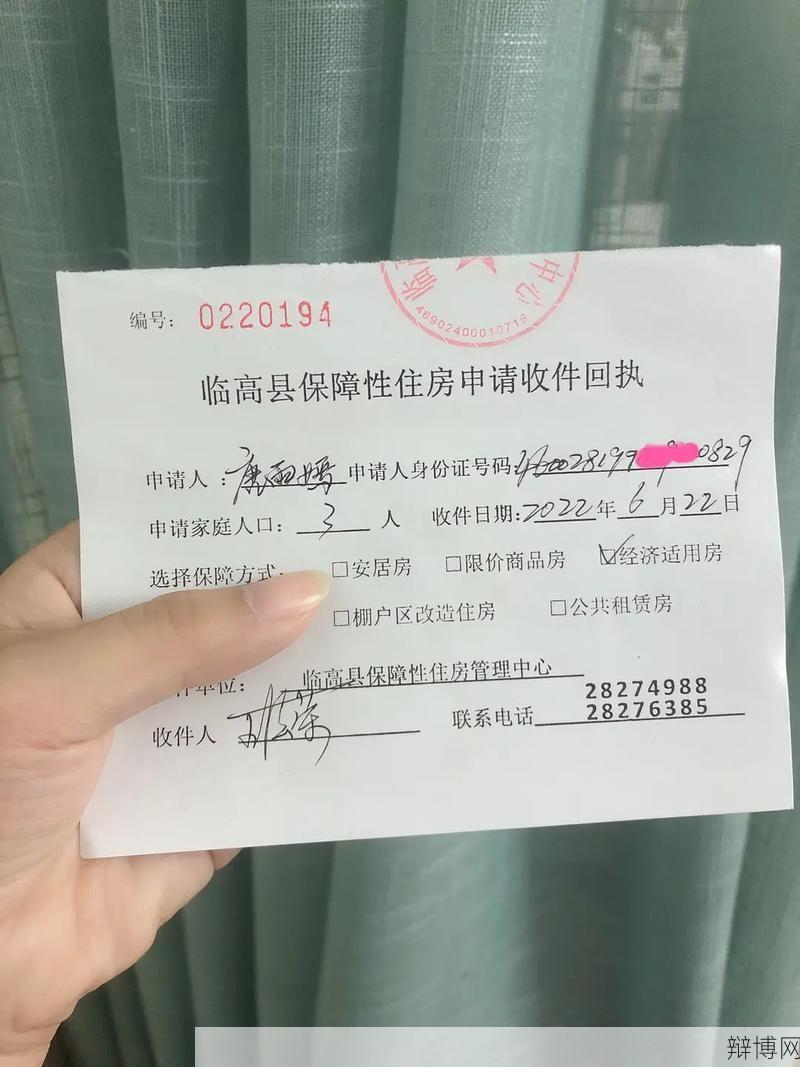 编号： 0220194
临高 中心
46902400010716
临高县保障性住房申请收件回执
申请人：康雨嫣 申请人身份证号码:
申请家庭人口：3 人 收件日期:2022年6月22日
选择保障方式： □安居房 □限价商品房 ☑经济适用房
□棚户区改造住房 □公共租赁房
件单位： 临高县保障性住房管理中心
28274988
收件人 联系电话 28276385
辩博网